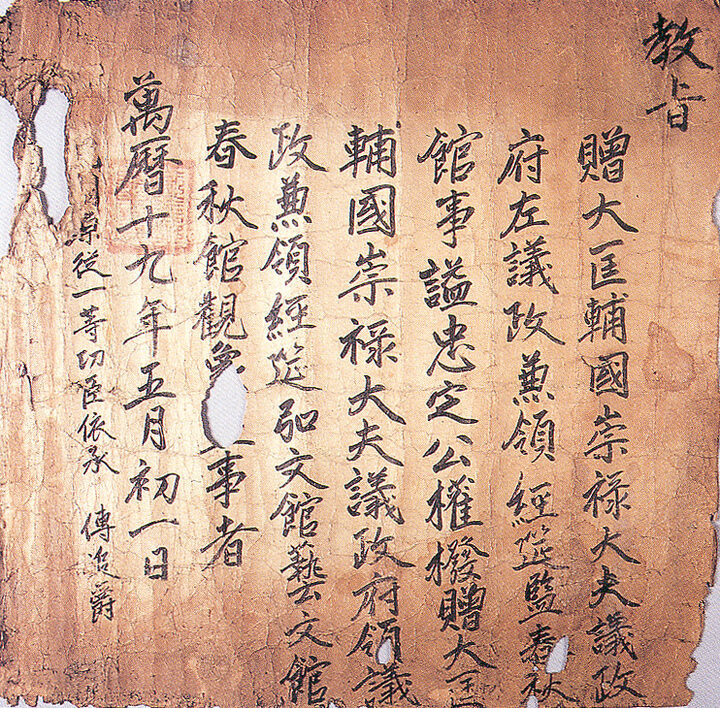 教旨
贈大匡輔國崇祿大夫議政
府左議政兼領 經筵監春秋
館事謚忠定公權橃贈大匡
輔國崇祿大夫議政府領議
政兼領經筵弘文館藝文館
春秋館觀象事者
萬曆十九年五月初一日
原從一等功臣依承 傳追爵